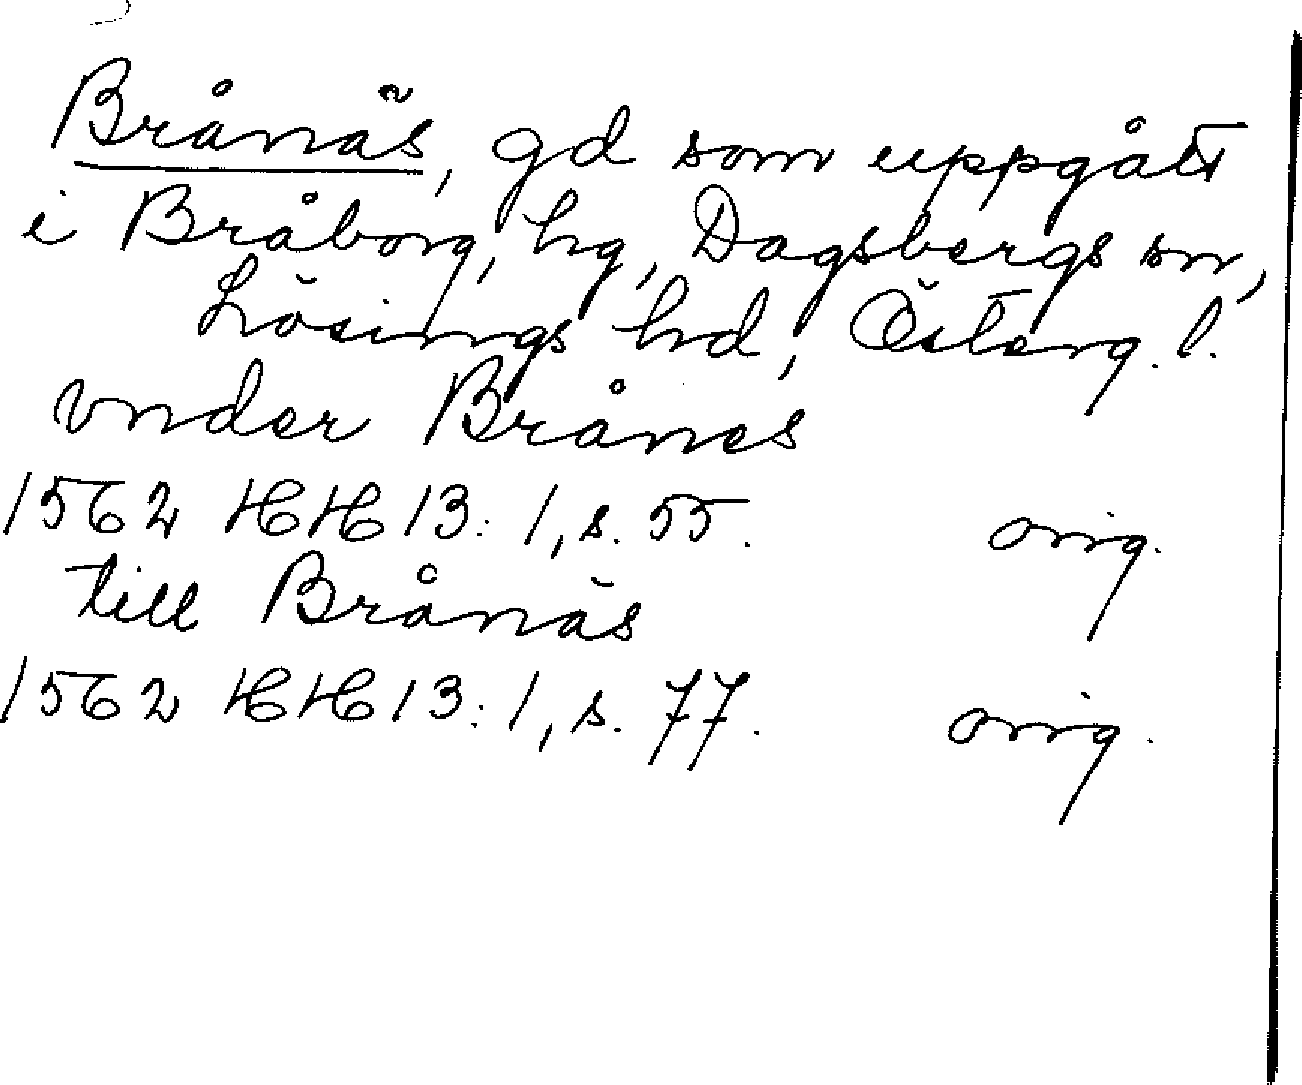 Brånäs, gd som uppgått
i Bråborg, hg, Dagsbergs sn,
Lösings hd, Österg. l.
vnder Brånes
1562 HH 13:1, s. 55. orig.
till Brånäs
1562 HH 13:1, s. 77. orig.